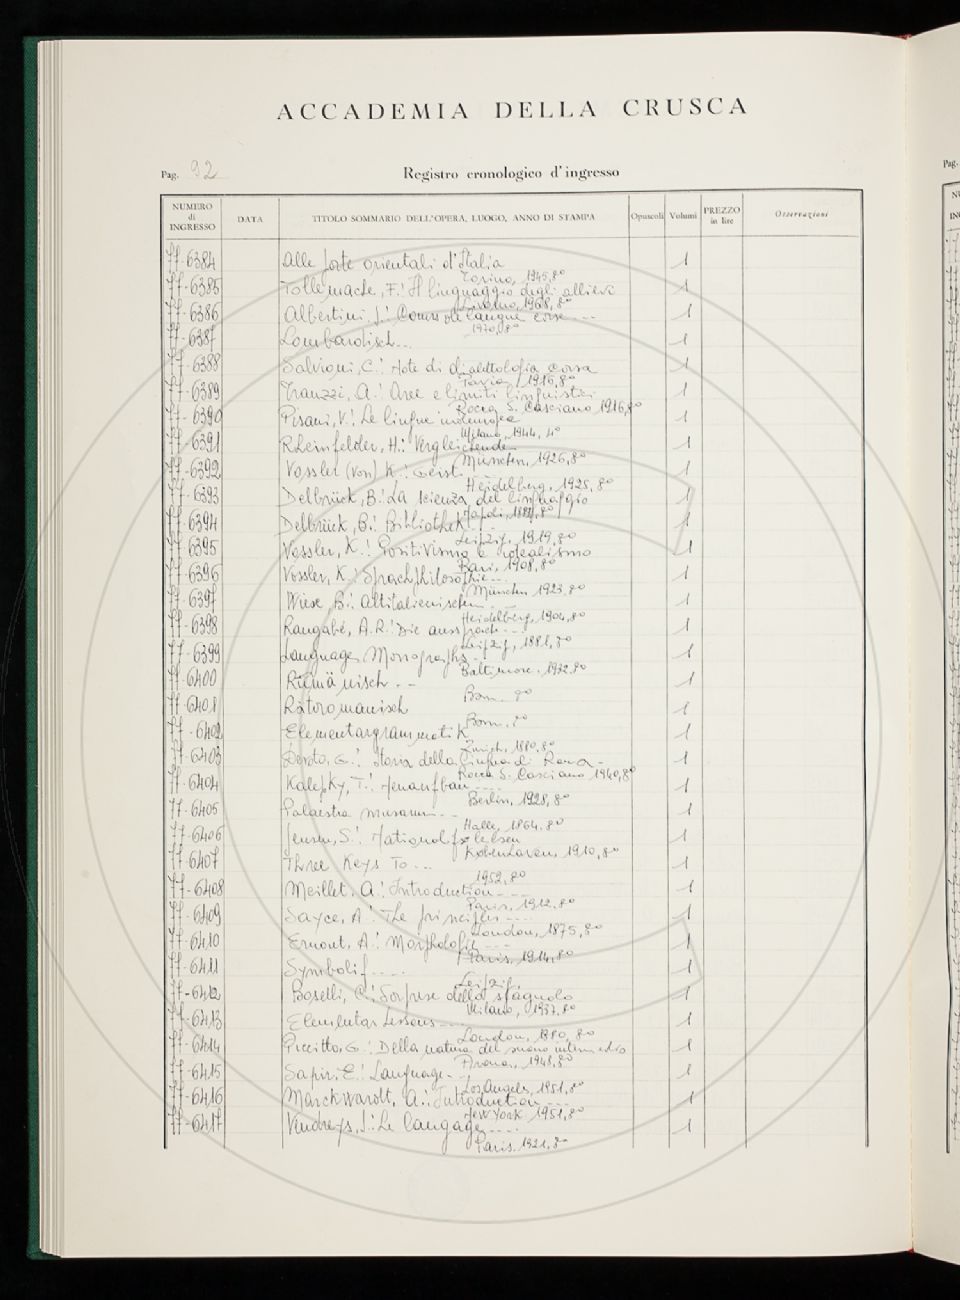 ACCADEMIA DELLA CRUSCA
Pag. 92
Registro cronologico d'ingresso
NUMERO di INGRESSO DATA TITOLO SOMMARIO DELL'OPERA, LUOGO, ANNO DI STAMPA Opuscoli Volumi PREZZO in lire Osservazioni
77-6384 Alle porte orientali d'Italia 1
Torino, 1945, 8°
77-6385 Tollemache, F.: Il linguaggio degli allievi 1
Livorno, 1968, 8°
77-6386 Albertini, J.: Cours de langue corse --- 1
1970, 8°
77-6387 Lombardisch... 1
77-6388 Salvioni, C.: Note di dialettologia corsa 1
Pavia, 1916, 8°
77-6389 Tranzzi, A.: Aree e limiti linguistici 1
Rocca S. Casciano 1916, 8°
77-6390 Pisani, V.: Le lingue indeuropee 1
Milano, 1944, 4°
77-6391 Rheinfelder, H.: Vergleichende 1
München, 1926, 8°
77-6392 Vossler (von) K.: Geist. 1
Heidelberg, 1925, 8°
77-6393 Delbrück, B.: La scienza del linguaggio 1
Napoli, 1881, 8°
77-6394 Delbrück, B.: Bibliothek... 1
Leipzig, 1919, 8°
77-6395 Vossler, K.: Positivismo e idealismo 1
Bari, 1908, 8°
77-6396 Vossler, K.: Sprachphilosophie... 1
München 1923, 8°
77-6397 Wiese B.: Altitalienischen... 1
Heidelberg, 1904, 8°
77-6398 Rangabé, A.R.: Die aussprache --- 1
Leipzig, 1881, 8°
77-6399 Language Monographs. 1
Baltimore, 1932, 8°
77-6400 Rumänisch -- 1
Bonn. 8°
77-6401 Rätoromanisch 1
Bonn. 8°
77-6402 Elementargrammatik 1
Zurich, 1880, 8°
77-6403 Devoto, G.: Storia della lingua di Roma - 1
Rocca S. Casciano 1940, 8°
77-6404 Kalepky, T.: Neuaufbau ---- 1
Berlin, 1928, 8°
77-6405 Palaestra musarum -- 1
Halle, 1864, 8°
77-6406 Jensen, S.: 1
København, 1910, 8°
77-6407 Three Keys To ... 1
1952, 8°
77-6408 Meillet, A.: Introduction --- 1
Paris, 1912, 8°
77-6409 Sayce, A.: The principles ---- 1
London, 1875, 8°
77-6410 Ernout, A.: Morphologie --- 1
Paris, 1914, 8°
77-6411 1
Leipzig,
77-6412 Boselli, C.: Sorprese dello spagnolo 1
Milano, 1937, 8°
77-6413 Elementar Lessons --- 1
London, 1880, 8°
77-6414 Piccitto, G.: Della natura del suono intermedio 1
Arona, 1948, 8°
77-6415 Sapir, E.: Language -- 1
Los Angeles, 1951, 8°
77-6416 Marckwardt, A.: Introduction --- 1
New York, 1951, 8°
77-6417 Vendryes, J.: Le langage ---- 1
Paris, 1921, 8°